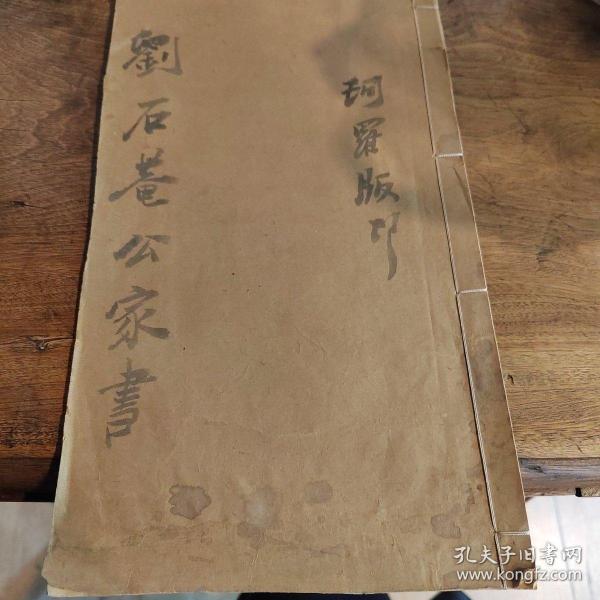 珂羅版印
劉石菴公家書
孔夫子旧书网
www.kongfz.com